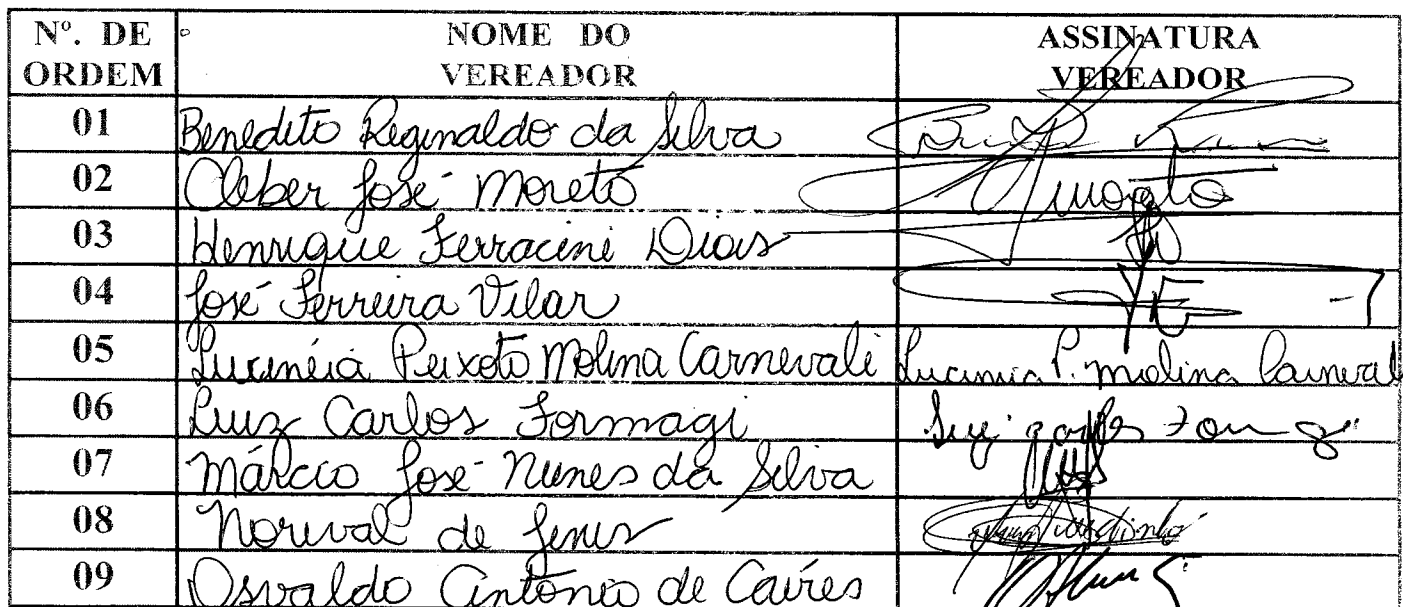 Nº. DE ORDEM NOME DO VEREADOR ASSINATURA VEREADOR
01 Benedito Reginaldo da Silva
02 Cleber José Moreto Moreto
03 Henrique Ferracini Dias
04 José Ferreira Vilar
05 Lucinéia Peixoto Molina Carnevali Lucineia P. Molina Carneval
06 Luiz Carlos Formagi
07 Márcio José Nunes da Silva
08 Norival de Jesus
09 Osvaldo Antonio de Caires